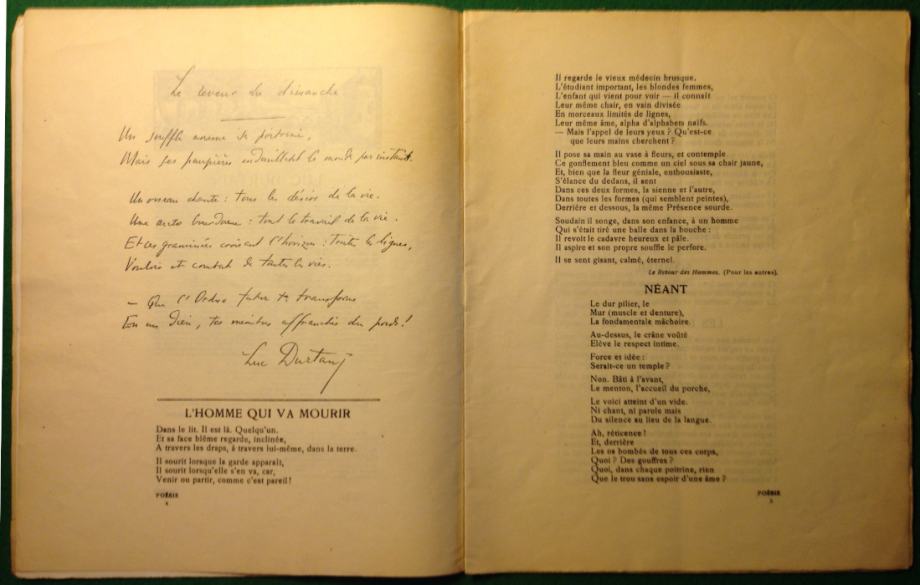 Le rêveur du dimanche
Un souffle anime sa poitrine,
Mais ses paupières engloutissent le monde par instant.
Un oiseau chante : tous les désirs de la vie.
Une auto bourdonne : tout le travail de la vie.
Et ces graminées croisant l'horizon : toutes les lignes,
Vouloir et combat de toutes les vies.
— Que l'Ordre futur te transforme
En un Dieu, tes membres affranchis du poids !
Luc Durtain
L'HOMME QUI VA MOURIR
Dans le lit. Il est là. Quelqu'un.
Et sa face blême regarde, inclinée,
A travers les draps, à travers lui-même, dans la terre.
Il sourit lorsque la garde apparaît,
Il sourit lorsqu'elle s'en va, car,
Venir ou partir, comme c'est pareil !
POÉSIE
4
Il regarde le vieux médecin brusque.
L'étudiant important, les blondes femmes,
L'enfant qui vient pour voir — il connaît
Leur même chair, en vain divisée
En morceaux limités de lignes,
Leur même âme, alpha d'alphabets naïfs.
— Mais l'appel de leurs yeux ? Qu'est-ce
que leurs mains cherchent ?
Il pose sa main au vase à fleurs, et contemple
Ce gonflement bleu comme un ciel sous sa chair jaune,
Et, bien que la fleur géniale, enthousiaste,
S'élance du dedans, il sent
Dans ces deux formes, la sienne et l'autre,
Dans toutes les formes (qui semblent peintes),
Derrière et dessous, la même Présence sourde.
Soudain il songe, dans son enfance, à un homme
Qui s'était tiré une balle dans la bouche :
Il revoit le cadavre heureux et pâle.
Il aspire et son propre souffle le perfore.
Il se sent gisant, calmé, éternel.
Le Retour des Hommes. (Pour les autres).
NÉANT
Le dur pilier, le
Mur (muscle et denture),
La fondamentale mâchoire.
Au-dessus, le crâne voûté
Elève le respect intime.
Force et idée :
Serait-ce un temple ?
Non. Bâti à l'avant,
Le menton, l'accueil du porche,
Le voici atteint d'un vide.
Ni chant, ni parole mais
Du silence au lieu de la langue.
Ah, réticence !
Et, derrière
Les os bombés de tous ces corps,
Quoi ? Des gouffres ?
Quoi, dans chaque poitrine, rien
Que le trou sans espoir d'une âme ?
POÉSIE
5